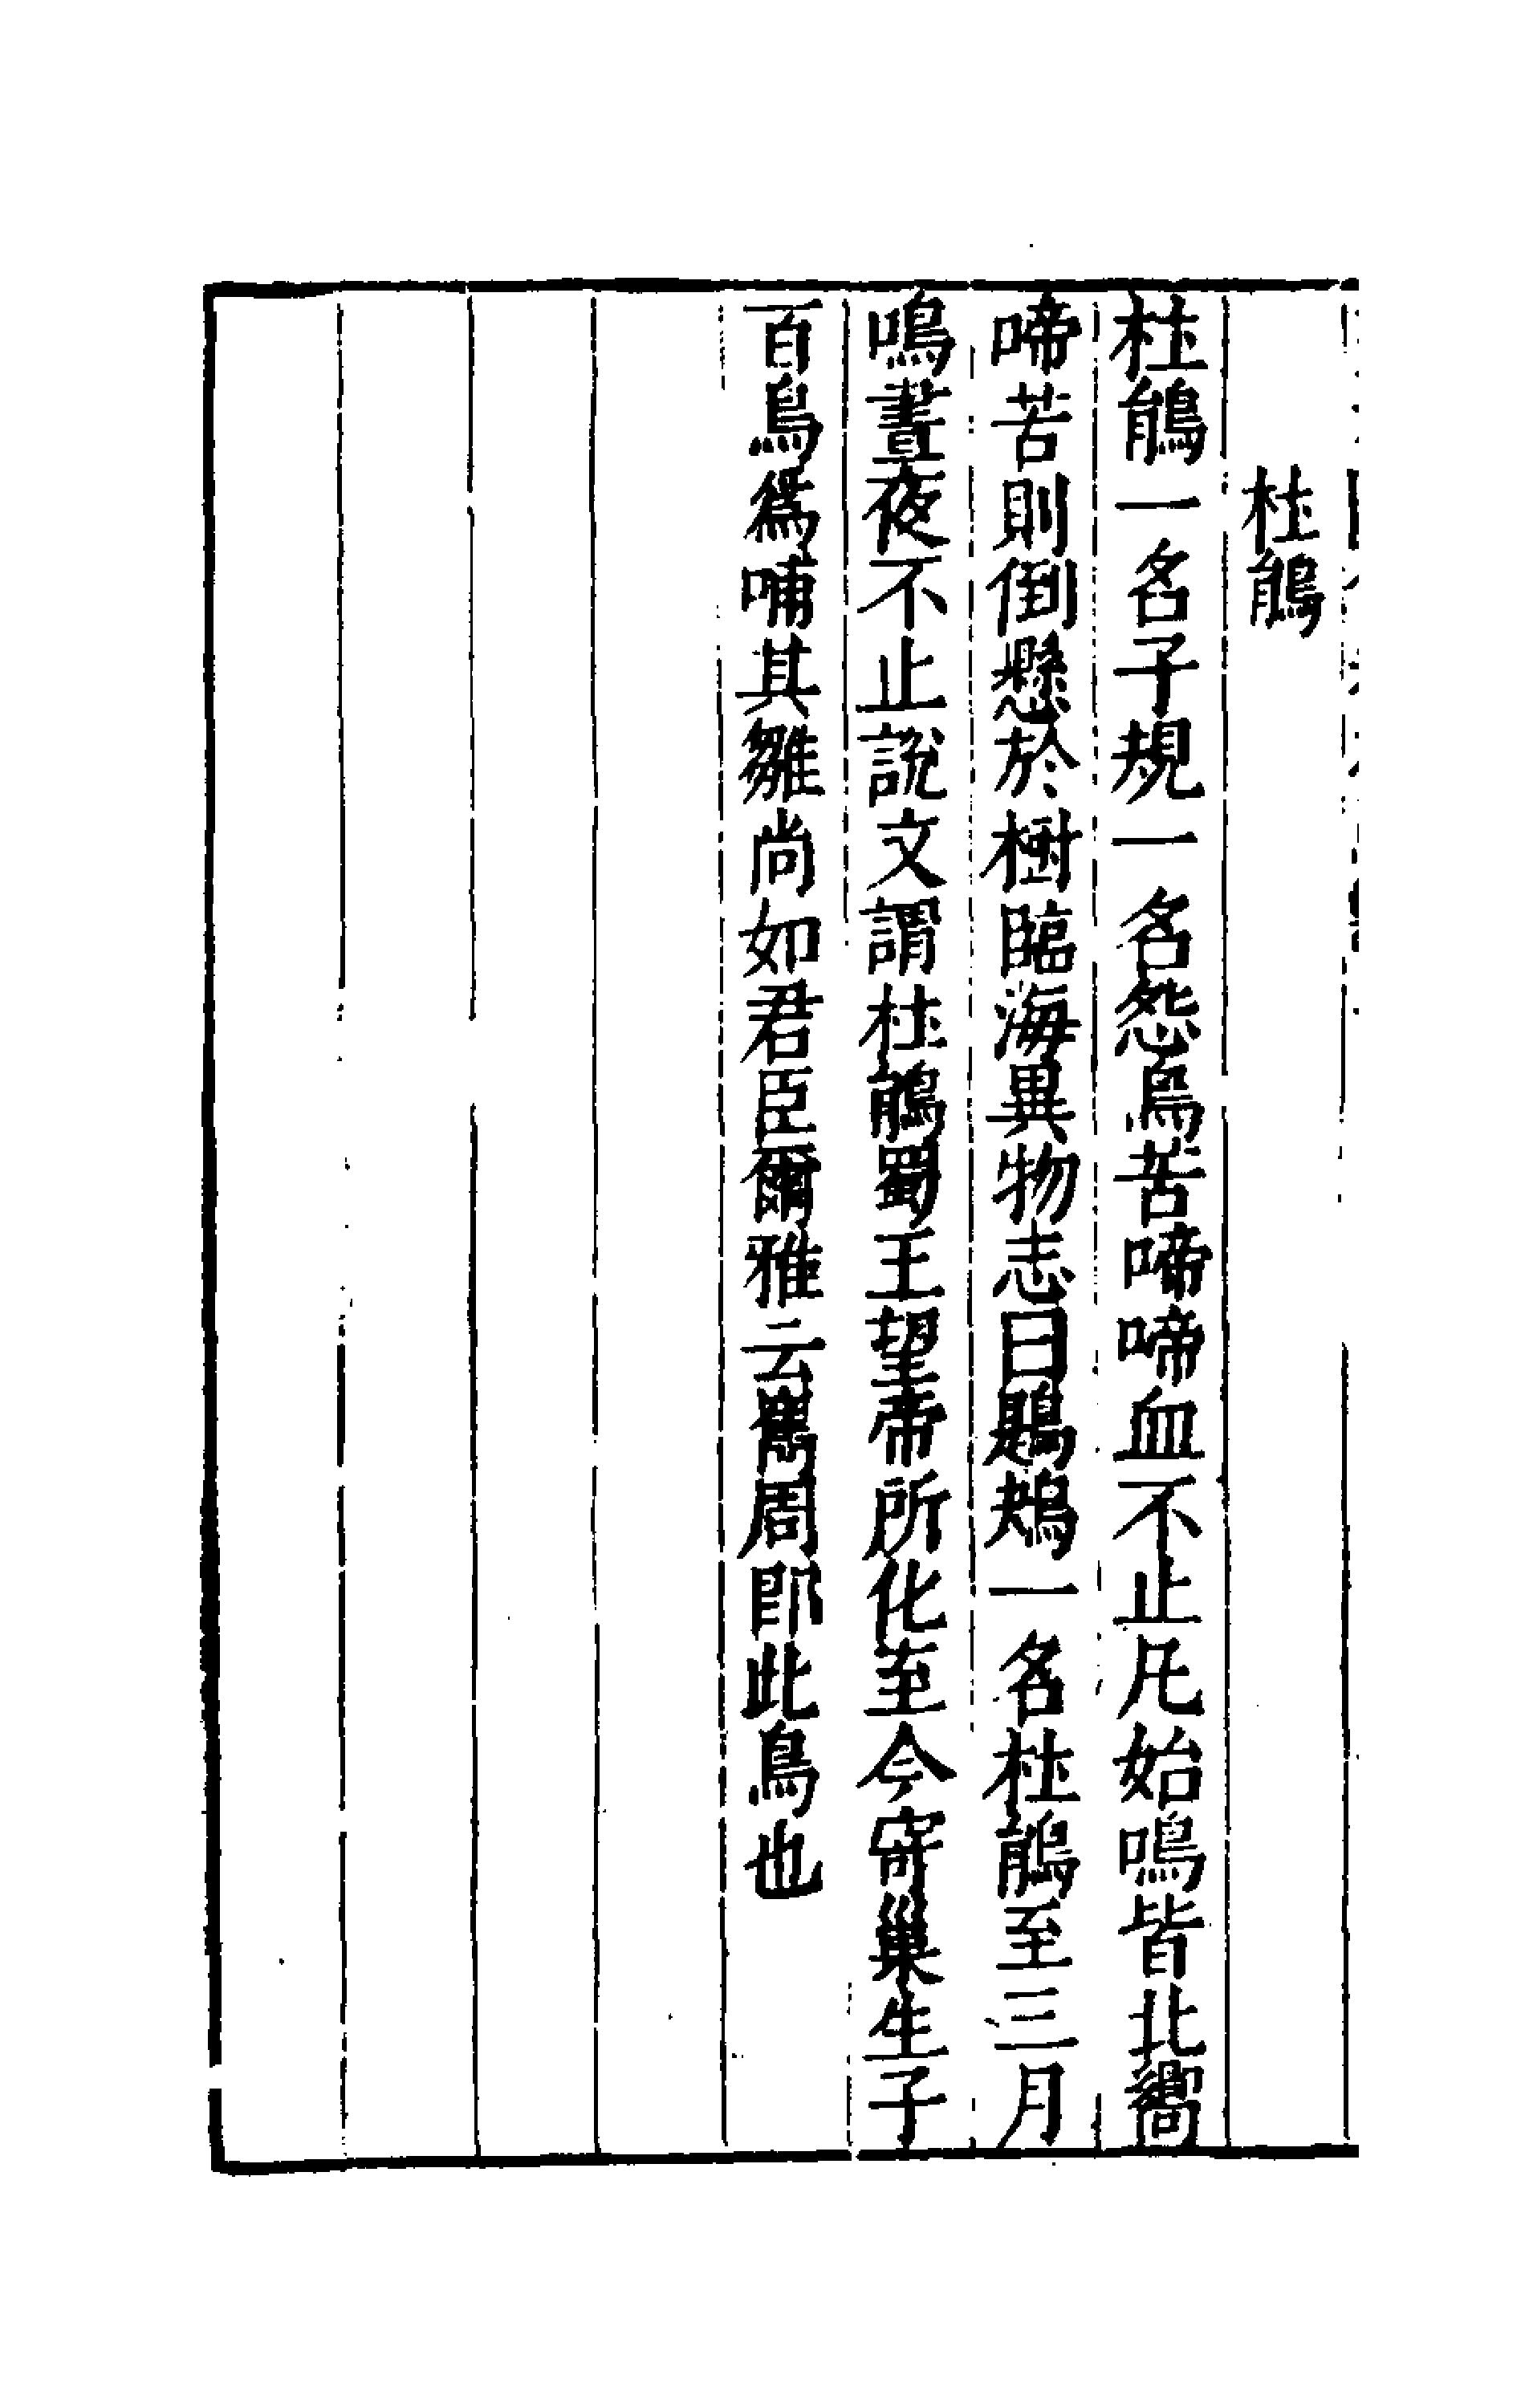 杜鵑
杜鵑一名子規一名怨鳥苦啼啼血不止凡始鳴皆北嚮
啼苦則倒懸於樹臨海異物志曰鶗鴂一名杜鵑至三月
鳴晝夜不止說文謂杜鵑蜀王望帝所化至今寄巢生子
百鳥爲哺其雛尚如君臣爾雅云巂周即此鳥也